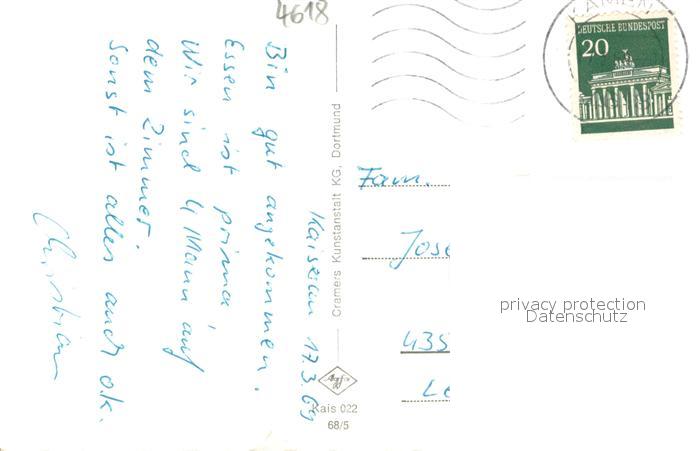 4618
Kaiserau 17.3.69
Bin gut angekommen.
Essen ist prima,
Wir sind 4 Mann auf
dem Zimmer.
Sonst ist alles auch o.k.
Christian
Cramers Kunstanstalt KG, Dortmund
Kais 022
68/5
DEUTSCHE BUNDESPOST
20
Fam.
Jose
435
Le
privacy protection
Datenschutz